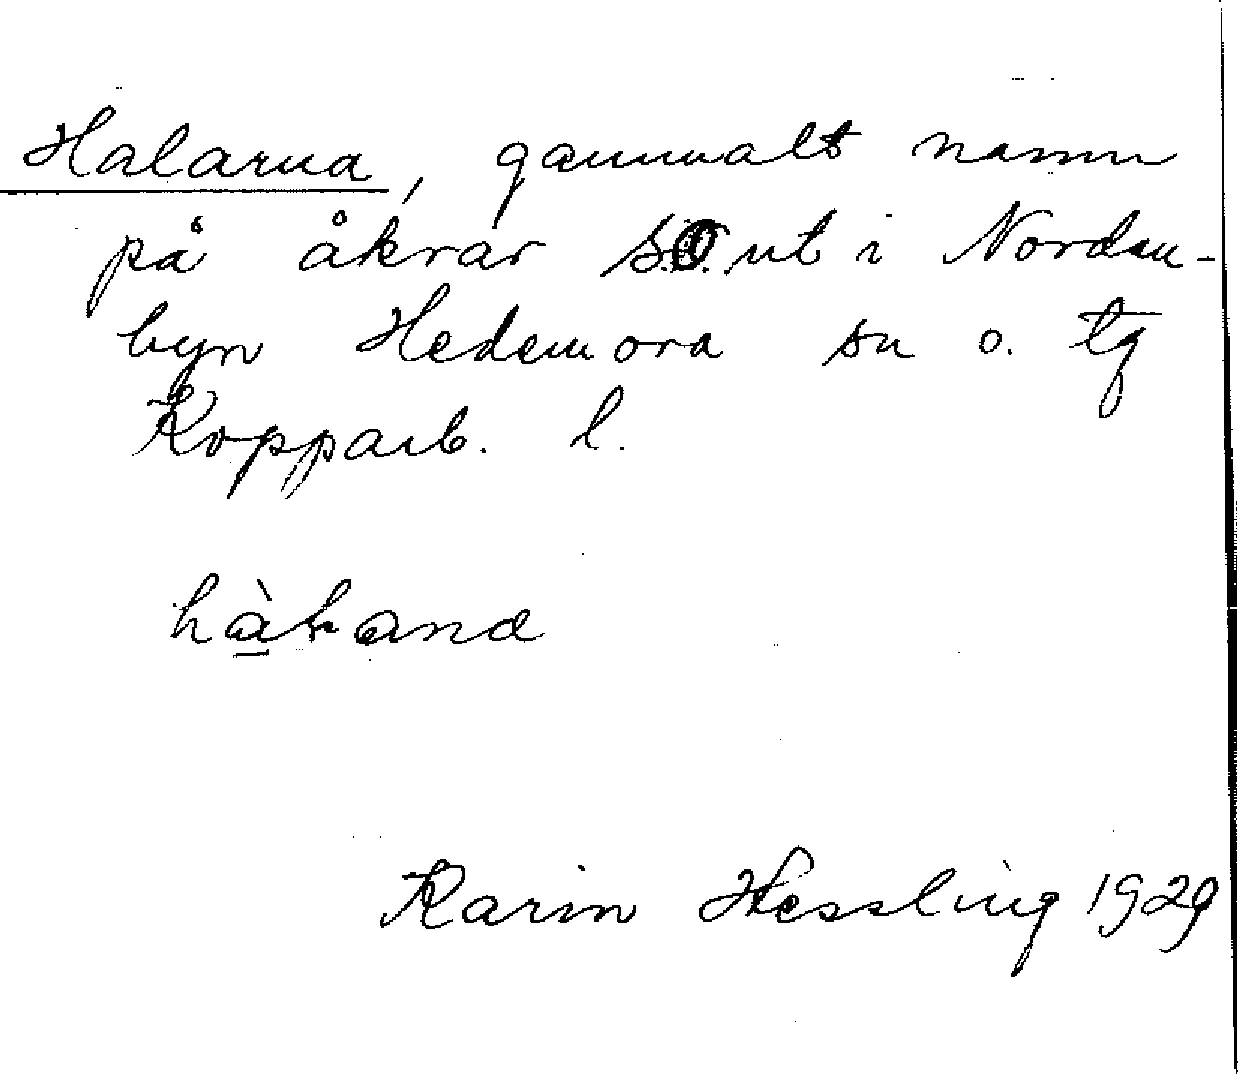 Halarna, gammalt namn
på åkrar S.O. ut i Nordan-
byn Hedemora sn o. tg
Kopparb. l.
Karin Hessling 1929